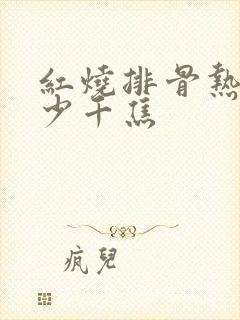 紅燒排骨熱
少千焦
疯兒